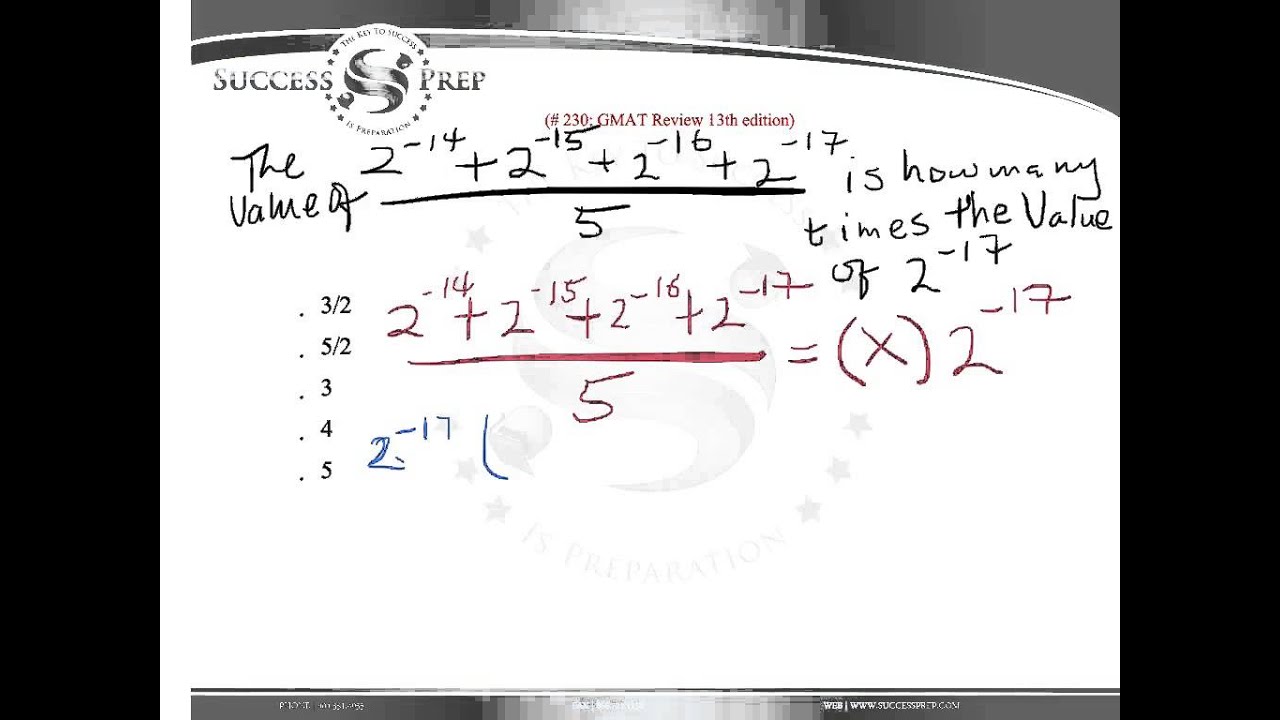 THE KEY TO SUCCESS
SUCCESS PREP
IS PREPARATION
(# 230: GMAT Review 13th edition)
The value of (2^-14 + 2^-15 + 2^-16 + 2^-17) / 5 is how many
times the Value
of 2^-17
. 3/2
. 5/2
. 3
. 4
. 5
(2^-14 + 2^-15 + 2^-16 + 2^-17) / 5 = (X) 2^-17
2^-17 (
IS PREPARATION
WEB | WWW.SUCCESSPREP.COM